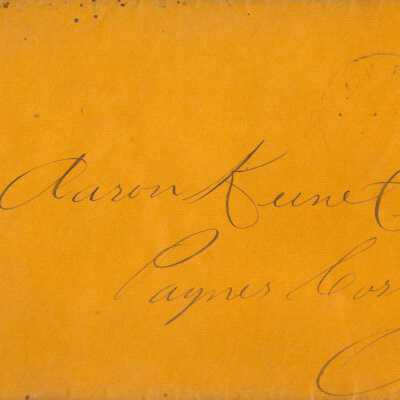 Aaron Kune
Paynes Cor